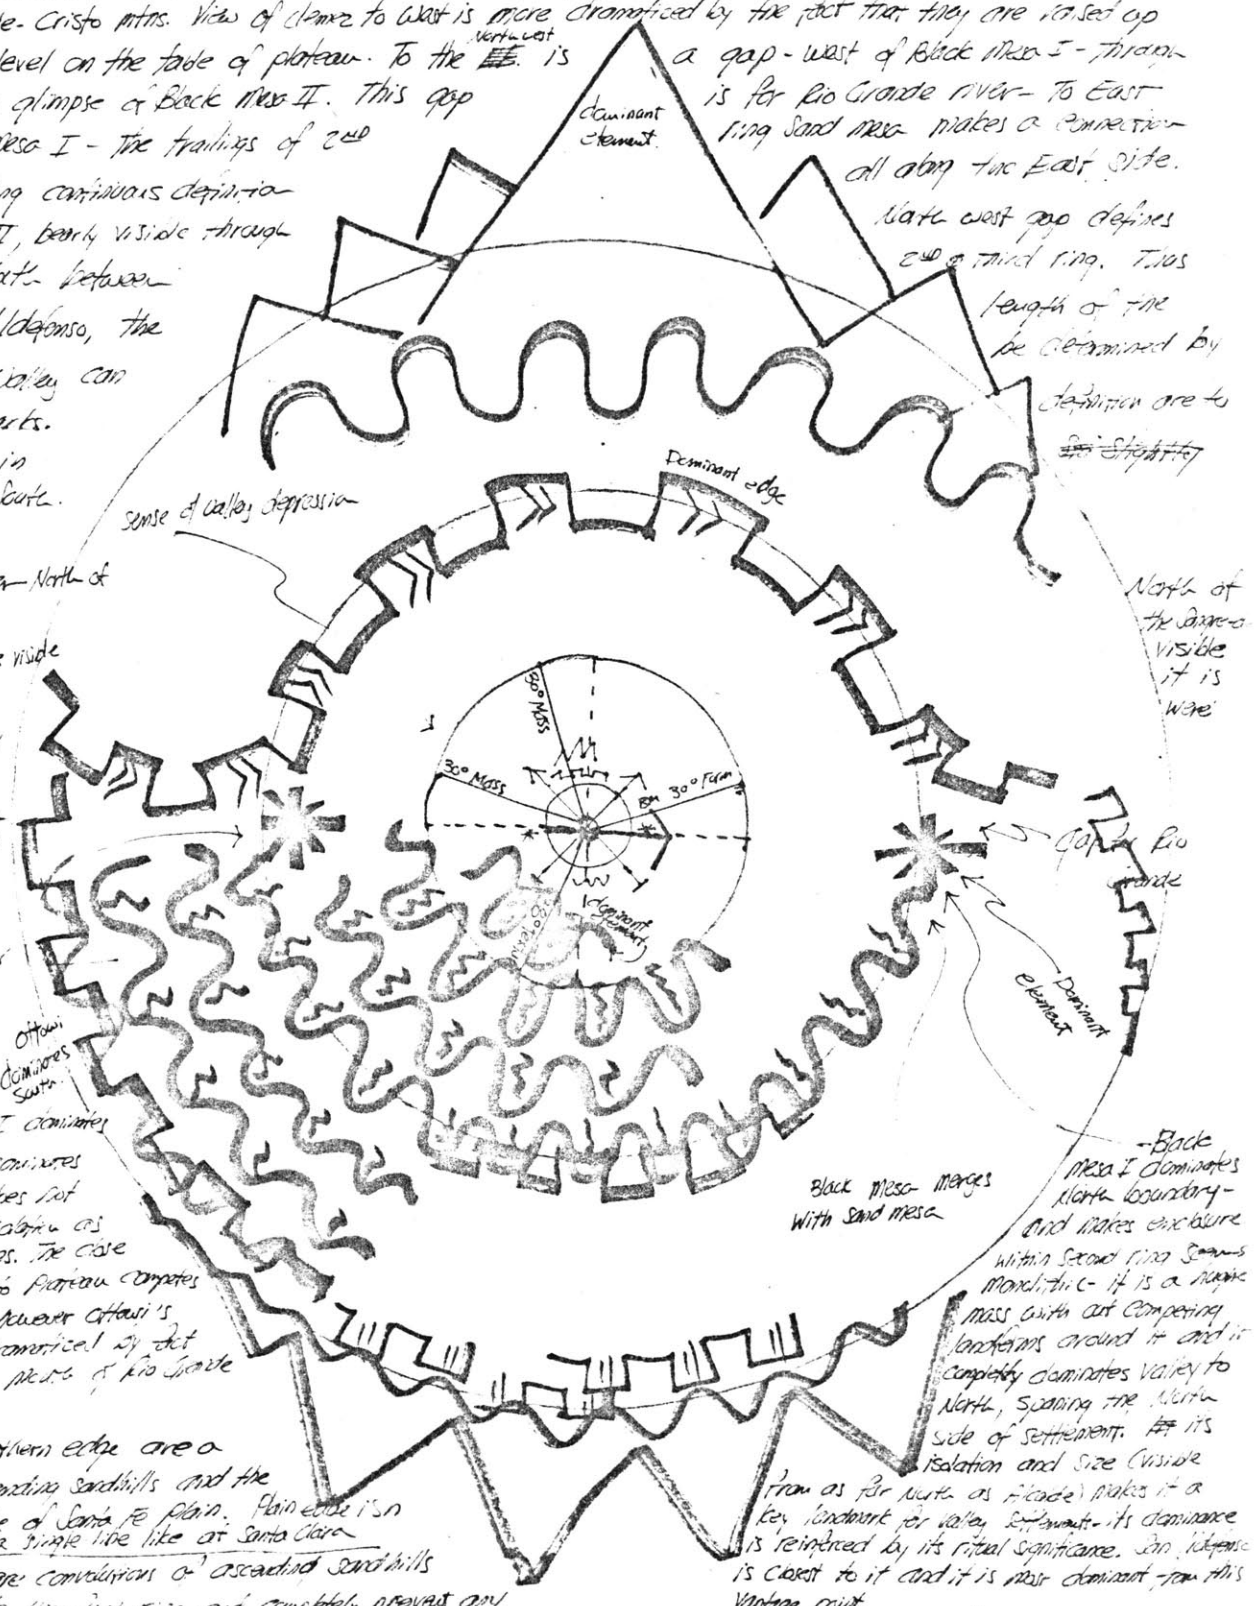 de-Cristo mtns. View of Jemez to West is more dramaticed by the fact that they are raised up
level on the table of plateau. To the Northwest is a gap - west of Black Mesa I - Through
glimpse of Black Mesa II. This gap is for Rio Grande river - To East
Mesa I - The trailings of 2ND ring Sand mesa makes a connection
all along the East Side.
ng continuous definition
II, bearly visible through
North west gap defines
2ND & Third ring. Thus
between
length of the
Ildefonso, the
be determined by
Valley can
definition are to
arts.
in
South.
dominant
element.
Dominant edge
sense of valley depression
North of
visible
North of
the Sangre-
visible
it is
were
60° Mass
30° Mass
30° Form
BM
dominant
element
Gap for Rio
Grande
Dominant
element
Ottowi
dominates
South.
I dominates
dominates
does not
isolation as
The close
Plateau competes
However Ottowi's
dramaticed by fact
North of Rio Grande
- Black
Mesa I dominates
North boundary -
and makes enclosure
within second ring seems
Monolithic - it is a huge
mass with out competing
landforms around it and it
completely dominates valley to
North, spaning the North
side of settlement. its
isolation and size (visible
from as far North as Alcade) makes it a
key landmark for valley settlements - its dominance
is reinforced by its ritual significance. San Ildefonso
is closest to it and it is most dominant from this
Vantage point
Black mesa merges
with sand mesa
thern edge are a
ending sandhills and the
of Santa Fe Plain. Plain edge isn
a single line like at Santa Clara
are convolutions of ascending sandhills
and completely prevent any